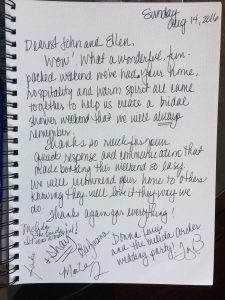 Sunday
Aug 14, 2016
Dearest John and Ellen,
Wow! What a wonderful, fun-
packed weekend we've had. Your home,
hospitality and warm spirit all came
together to help us create a bridal
shower weekend that we will always
remember.
Thanks so much for your
quick response and communications that
made booking this weekend so easy.
We will recommend your home to others
knowing they will love it the way we
do.
Thanks again for everything!
Donna Louis
and the Melida Archer
wedding party!
Melida
Barbara